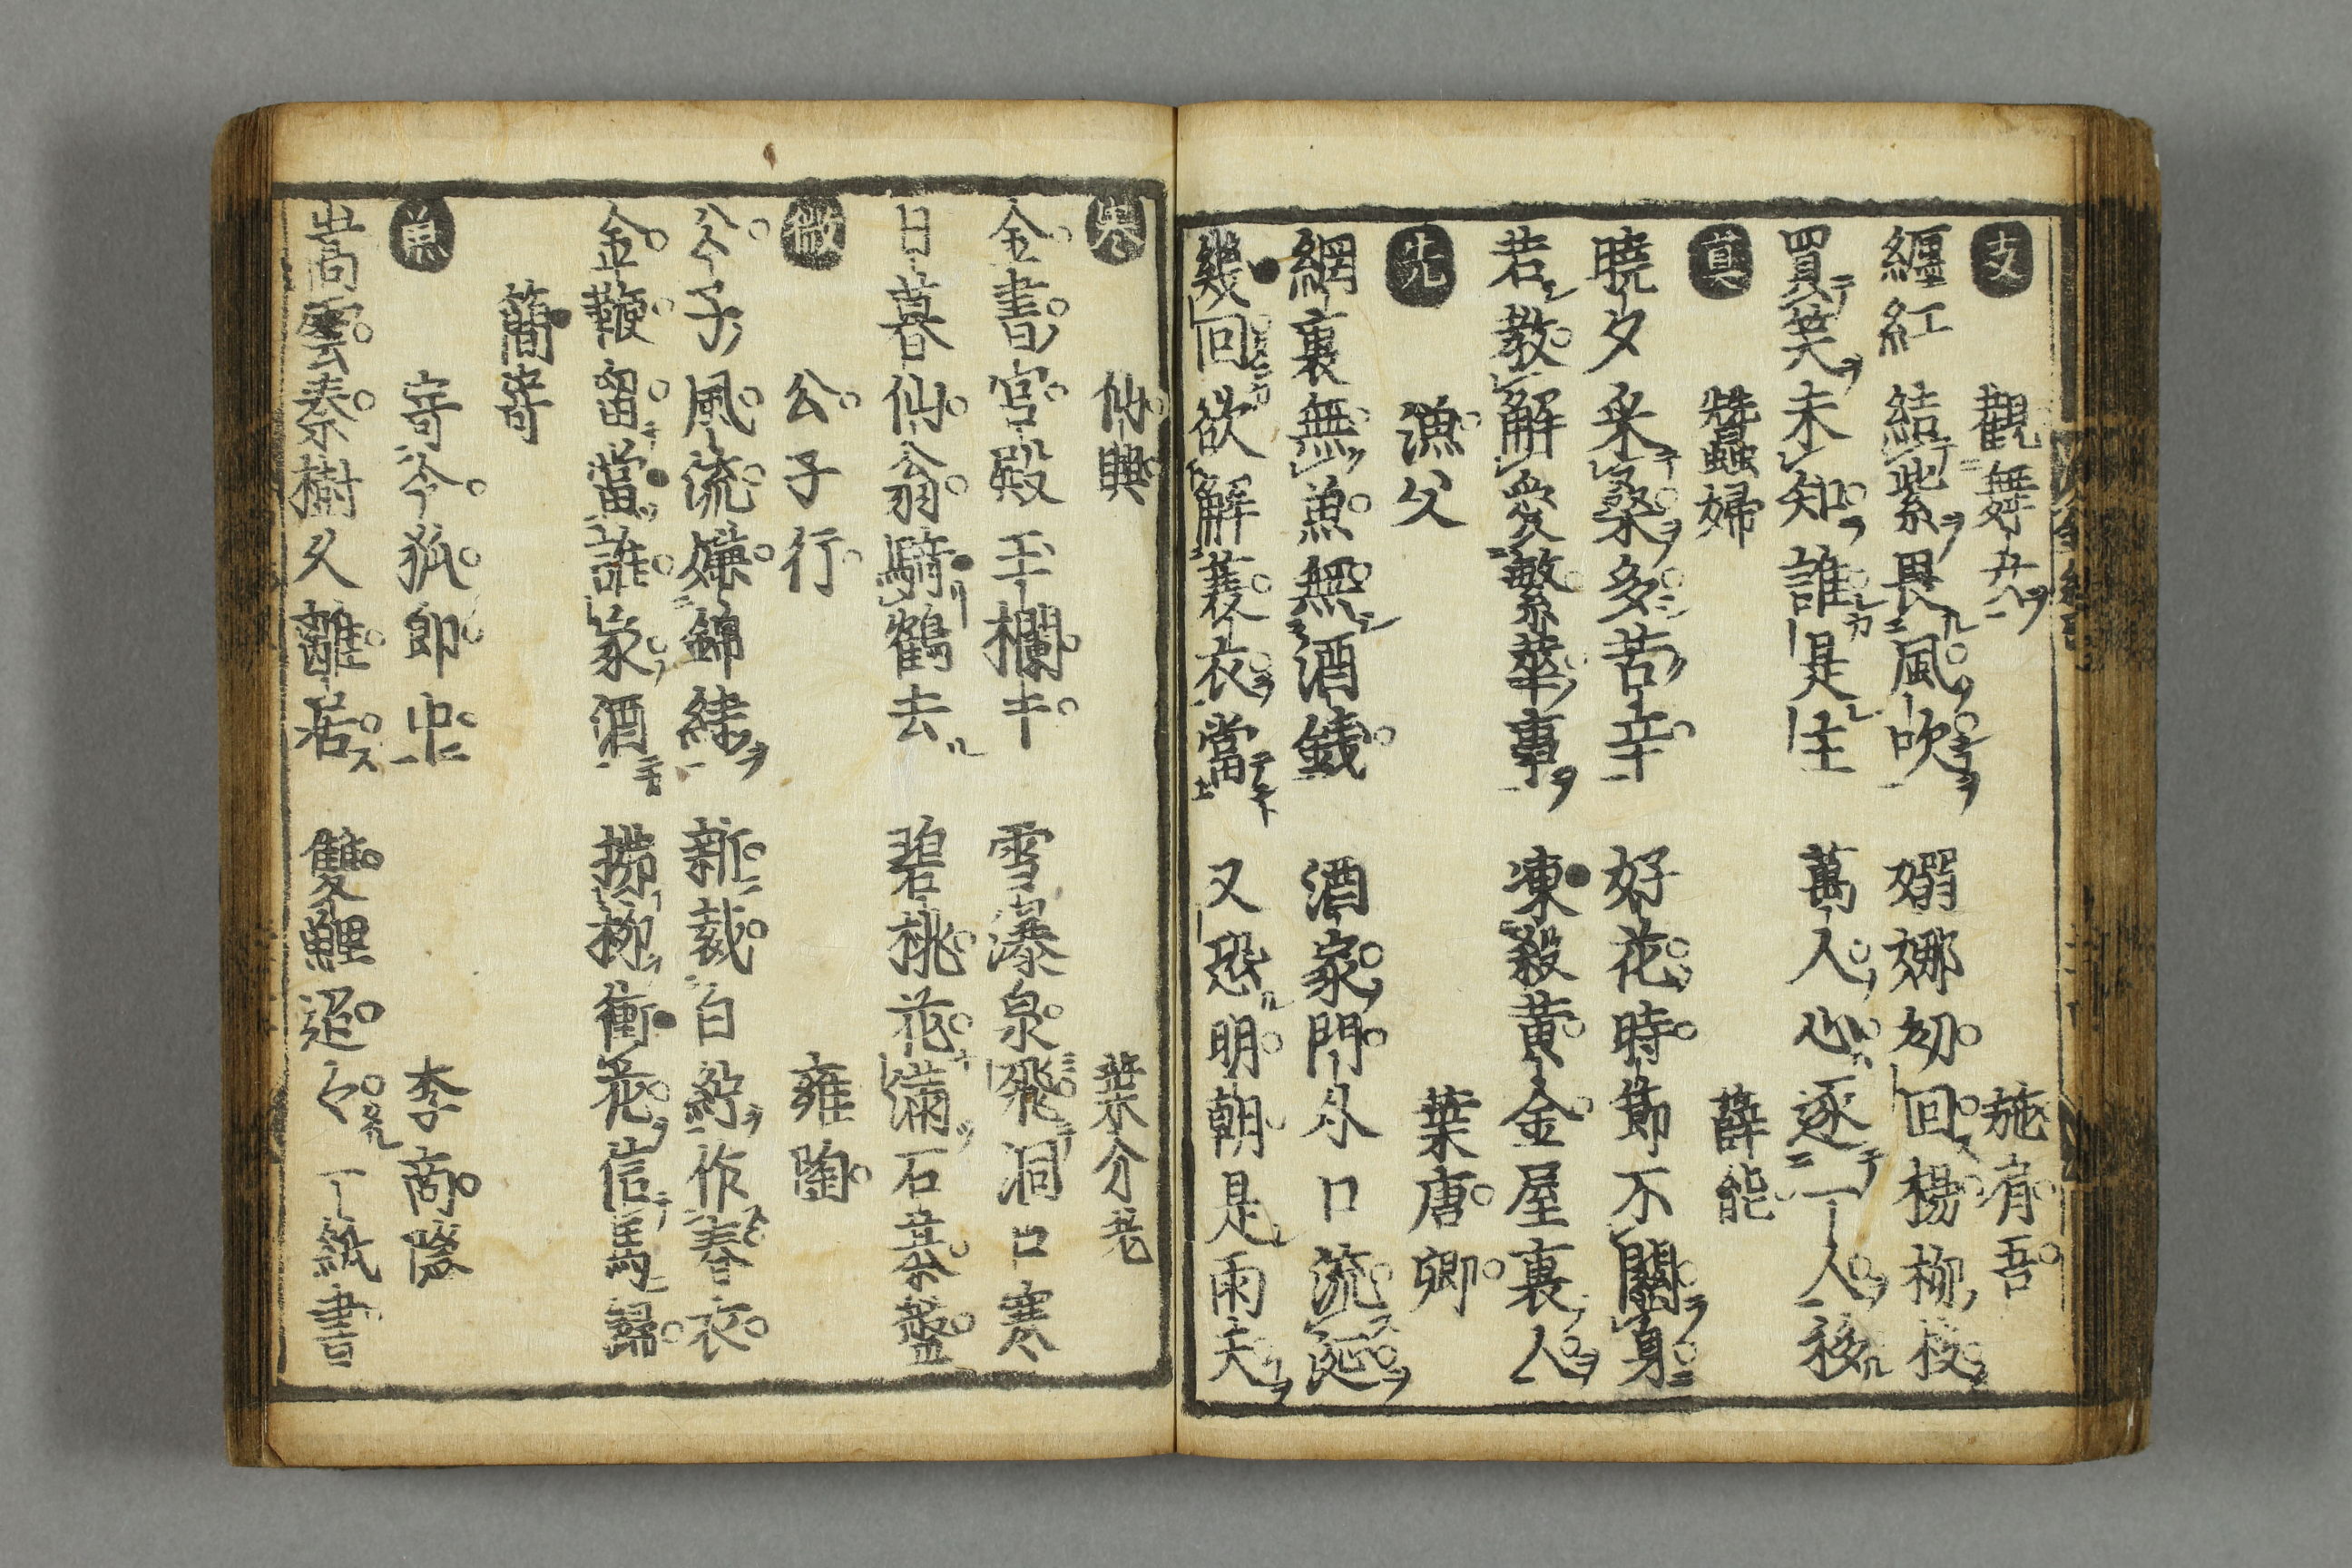 支　觀舞女　施肩吾
纏紅結紫畏風吹　嫋娜初回楊柳枝
買笑未知誰是主　萬人心逐一人移
真　蠶婦　薛能
曉夕采桑多苦辛　好花時節不關身
若教解愛繁華事　凍殺黄金屋裏人
先　漁父　葉唐卿
網裏無魚無酒錢　酒家門外口流涎
幾回欲解蓑衣當　又恐明朝是雨天
寒　仙興　葉介老
金書宮殿玉欄干　雪瀑泉飛洞口寒
日暮仙翁騎鶴去　碧桃花滿石碁盤
微　公子行　雍陶
公子風流嫌錦繡　新裁白紵作春衣
金鞭留當誰家酒　拂柳衝花信馬歸
簡寄
魚　寄令狐郎中　李商隱
嵩雲秦樹久離居　雙鯉迢々一紙書